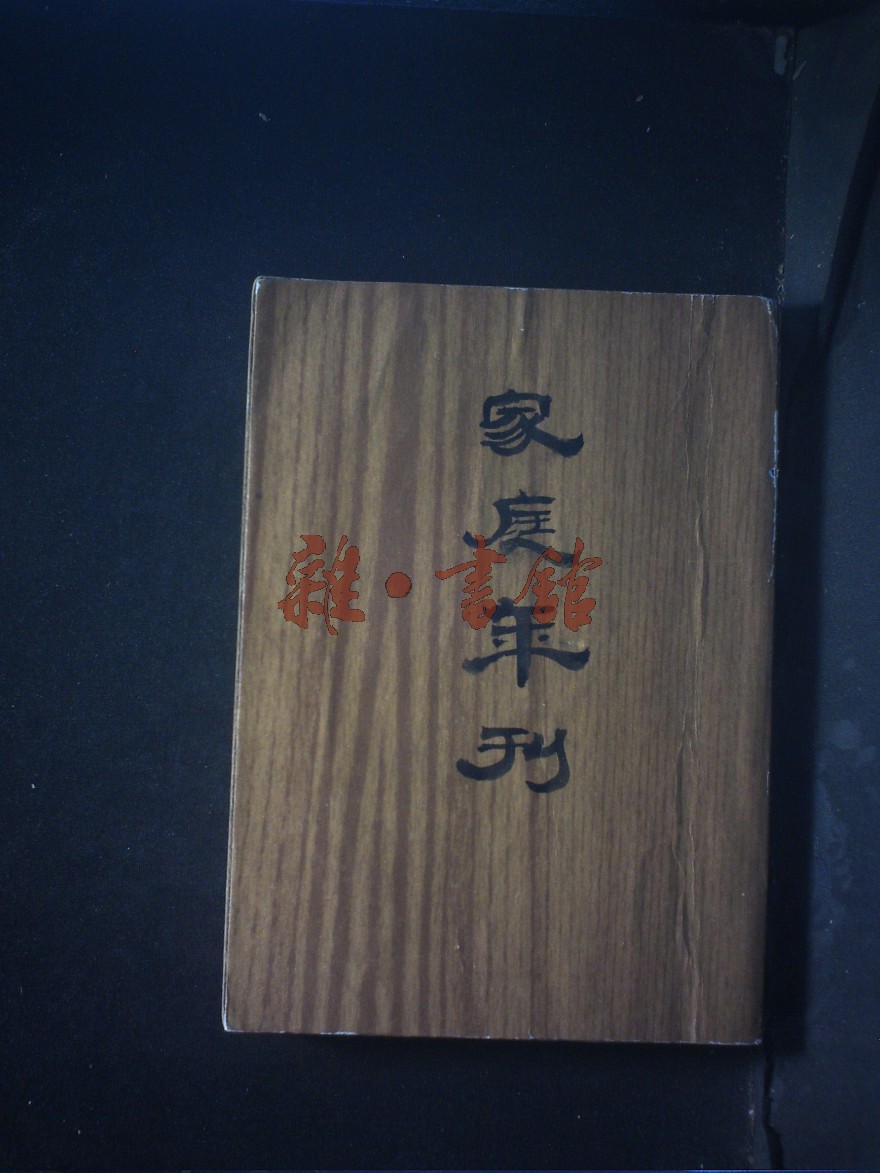 家庭年刊
雜·書館